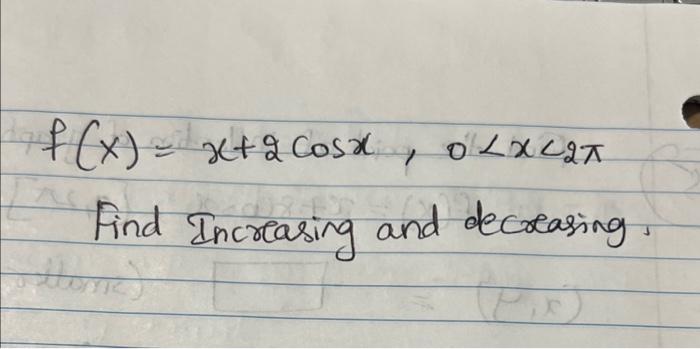 f(x) = x+2cosx, 0<x<2π
Find Increasing and decreasing.